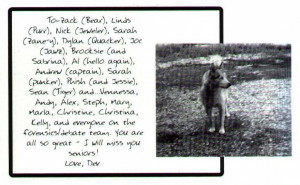 To-Zack (Bear), Linds
(Purr), Nick (Jeweler), Sarah
(Zaney), Dylan (Quacker), Joe
(Jawz), Brooksie (and
Sabrina), Al (hello again),
Andrew (captain), Sarah
(punker), Phish (and Jessie),
Sean (Tiger) and...Vennessa,
Andy, Alex, Steph, Mary,
Marla, Christine, Christina,
Kelly, and everyone on the
forensics/debate team. You are
all so great - I will miss you
seniors!
Love, Dev